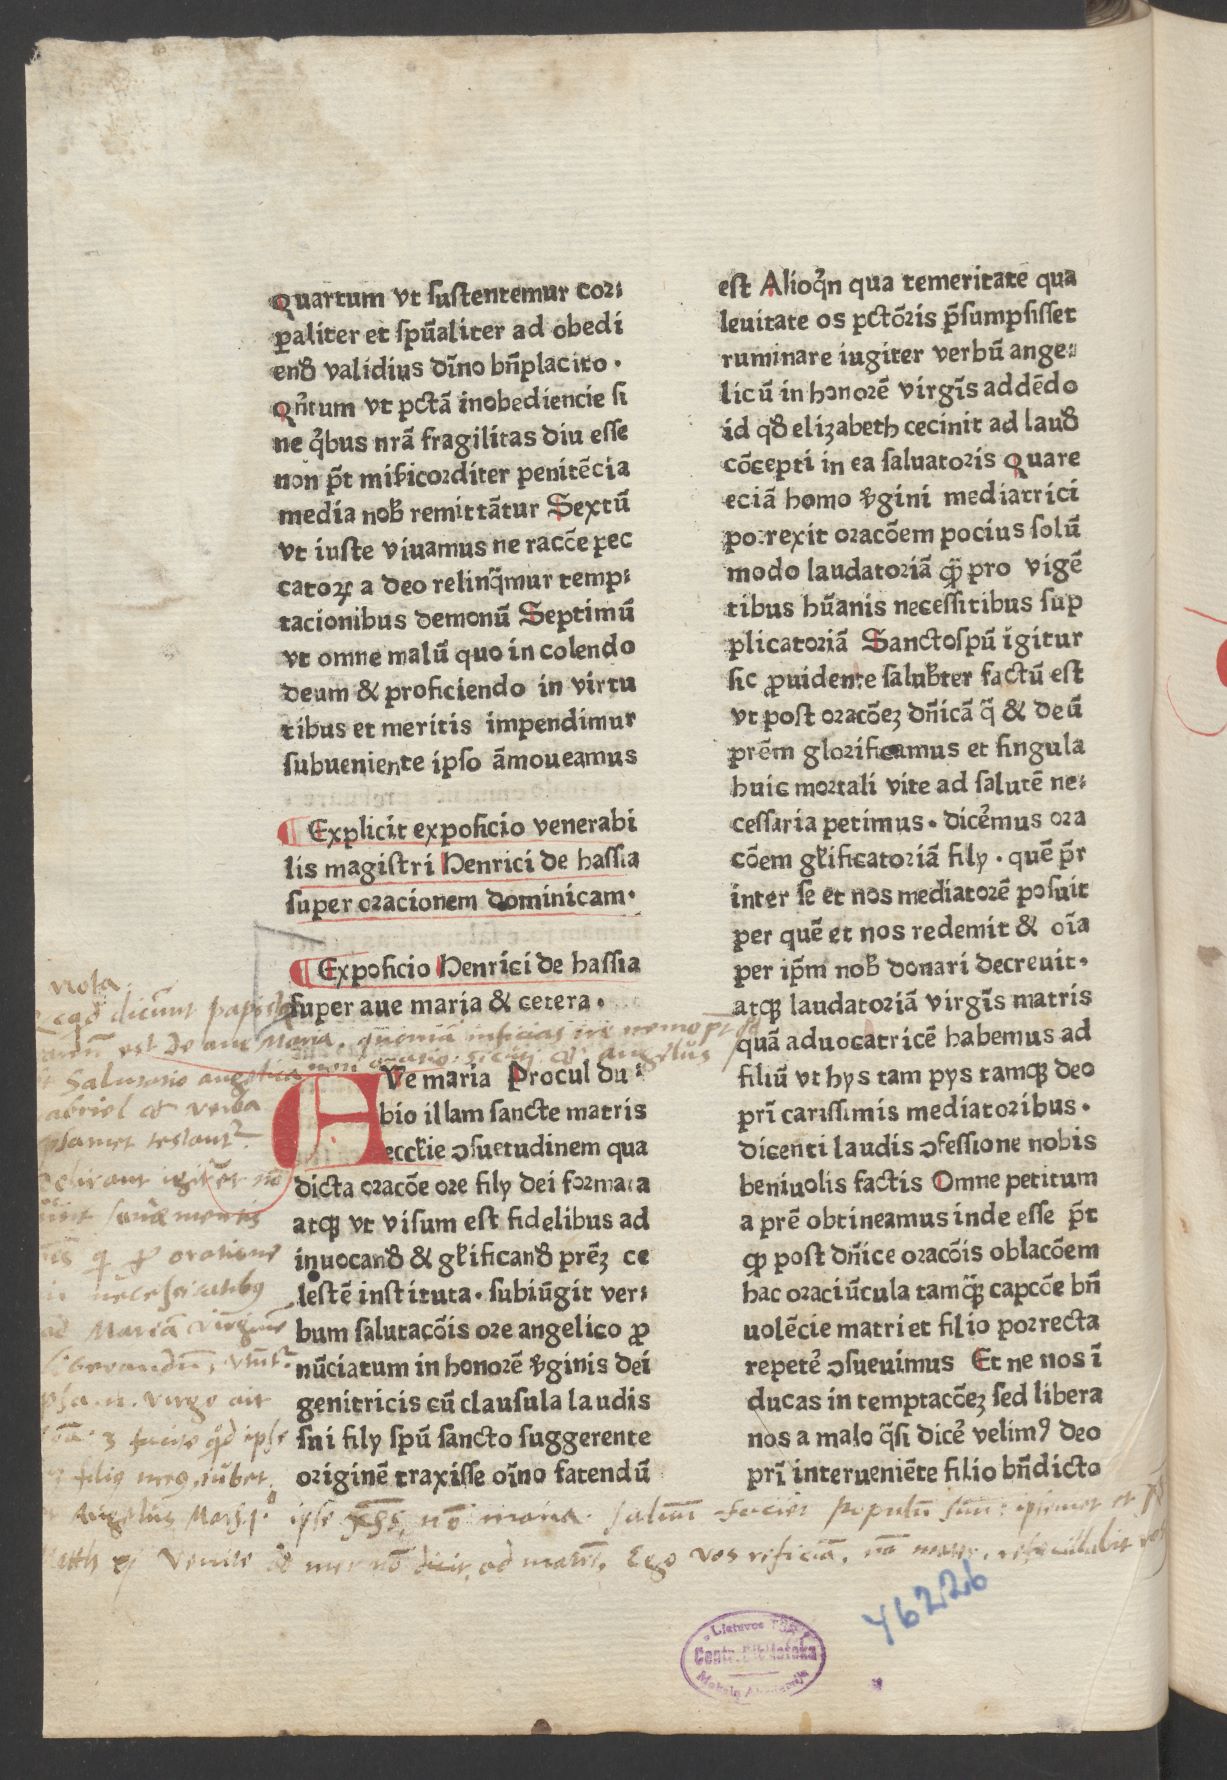 Quartum vt sustentemur cor⸗
ꝑaliter et spūaliter ad obedi
end̄ validius dīno bn̄placito ·
Qn̄tum vt pctā inobediencie si
ne qͥbus nrā fragilitas diu esse
non pn̄t mis̄icorditer penitēcia
media nob̄ remittātur Sextū
vt iuste viuamus ne racōe pec
catoꝝ a deo relinq̄mur temp⸗
tacionibus demonū Septimū
vt omne malū quo in colendo
deum & proficiendo in virtu
tibus et meritis impendimur
subueniente ipso āmoueamus
Explicit exposicio venerabi
lis magistri Henrici de hassia
super oracionem dominicam·
Exposicio Henrici de hassia
super aue maria & cetera ·
AVe maria Procul du⸗
bio illam sancte matris
ecclīe ↄsuetudinem qua
dicta oracōe ore filij dei formata
atqꝫ vt visum est fidelibus ad
inuocand̄ & gl̄ificand̄ prēꝫ ce
lestē instituta· subiūgit ver⸗
bum salutacōis ore angelico ꝓ
nūciatum in honorē v̄ginis dei
genitricis cū clausula laudis
sui filij spū sancto suggerente
originē traxisse oīno fatendū
est Alioqͥn qua temeritate qua
leuitate os pctōris p̄sumpsisset
ruminare iugiter verbū ange⸗
licū in honorē virgīs addēdo
id qd̄ elizabeth cecinit ad laud̄
cōcepti in ea saluatoris Quare
eciā homo v̄gini mediatrici
porrexit oracōem pocius solū
modo laudatoriā qꝫ̄ pro vigē
tibus hūanis necessitibus sup
plicatoriā Sanctospū igitur
sic ꝓuidente salub̄ter factū est
vt post oracōeꝫ dn̄icā q̄ & deū
prēm glorificamus et singula
huic mortali vite ad salutē ne⸗
cessaria petimus· dicem̓us ora
cōem gl̄ificatoriā filij · quē pr̄
inter se et nos mediatorē posuit
per quē et nos redemit & oīa
per ip̄m nob̄ donari decreuit·
atqꝫ laudatoriā virgīs matris
quā aduocatricē habemus ad
filiū vt hijs tam pijs tamqꝫ deo
pri carissimis mediatoribus·
dicenti laudis ↄfessione nobis
beniuolis factis Omne petitum
a prē obtineamus inde esse pn̄t
qꝫ post dn̄ice oracōis oblacōem
hac oraciūcula tamqꝫ̄ capcōe bn̄
uolēcie matri et filio porrecta
repetē ↄsueuimus Et ne nos ī
ducas in temptacōeꝫ sed libera
nos a malo q̄si dicē velimꝰ deo
pri interueniēte filio bn̄dicto
Nota
dicunt papistę
est de aue Maria, quoniā inficias ire nemo pt̄
non oratio
angelus
Salutatio angelica
gabriel verba
testant̄
igitur
sane mentis
oratione
necessitatibꝰ
ad Mariā virginē
virgo ait
ipse
filiꝰ meꝰ iubet
Angelus ipse nō maria saluū faciet populū suū
Venite ad me nō dicit, ad matrē, Ego vos reficiā, nō mater
Lietuvos TSR
Centr. Biblioteka
Mokslų Akademija
46226